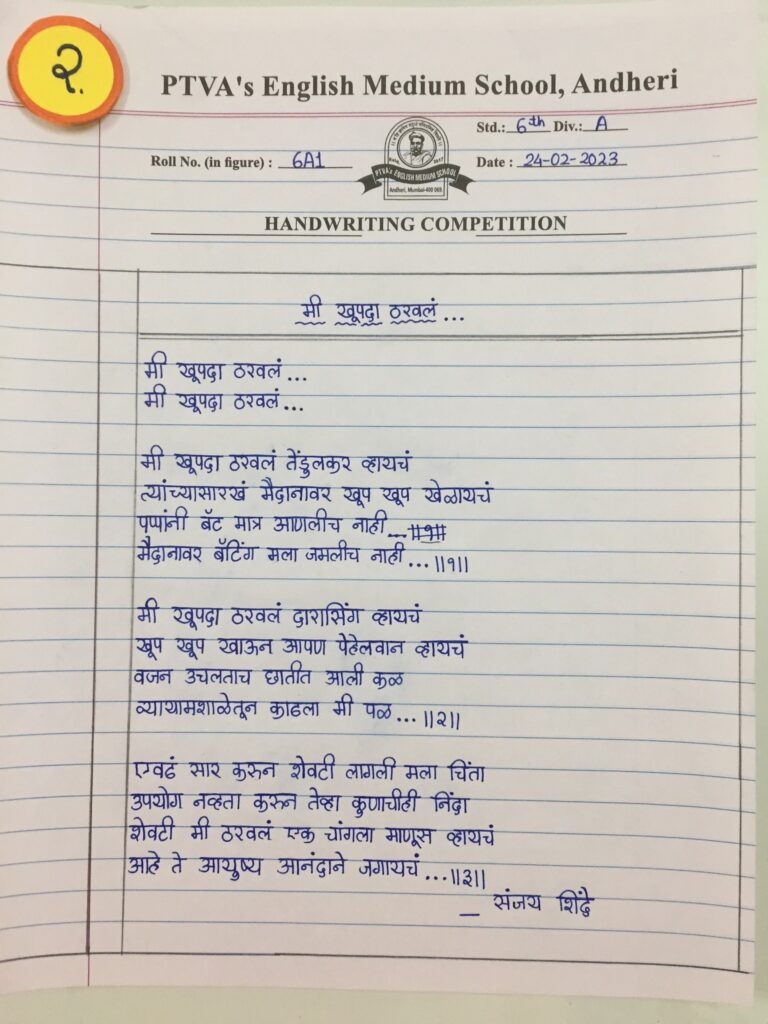 २.
PTVA's English Medium School, Andheri
Std.: 6th Div.: A
Roll No. (in figure) : 6A1
PTVA's ENGLISH MEDIUM SCHOOL
Andheri, Mumbai-400 069.
Date : 24-02-2023
HANDWRITING COMPETITION
मी खूपदा ठरवलं ...
मी खूपदा ठरवलं ...
मी खूपदा ठरवलं ...
मी खूपदा ठरवलं तेंडुलकर व्हायचं
त्यांच्यासारखं मैदानावर खूप खूप खेळायचं
पप्पांनी बॅट मात्र आणलीच नाही ... ॥१॥
मैदानावर बॅटिंग मला जमलीच नाही ... ॥१॥
मी खूपदा ठरवलं दारासिंग व्हायचं
खूप खूप खाऊन आपण पेहेलवान व्हायचं
वजन उचलताच छातीत आली कळ
व्यायामशाळेतून काढला मी पळ ... ॥२॥
एवढं सार करुन शेवटी लागली मला चिंता
उपयोग नव्हता करुन तेव्हा कुणाचीही निंदा
शेवटी मी ठरवलं एक चांगला माणूस व्हायचं
आहे ते आयुष्य आनंदाने जगायचं ... ॥३॥
_ संजय शिंदे